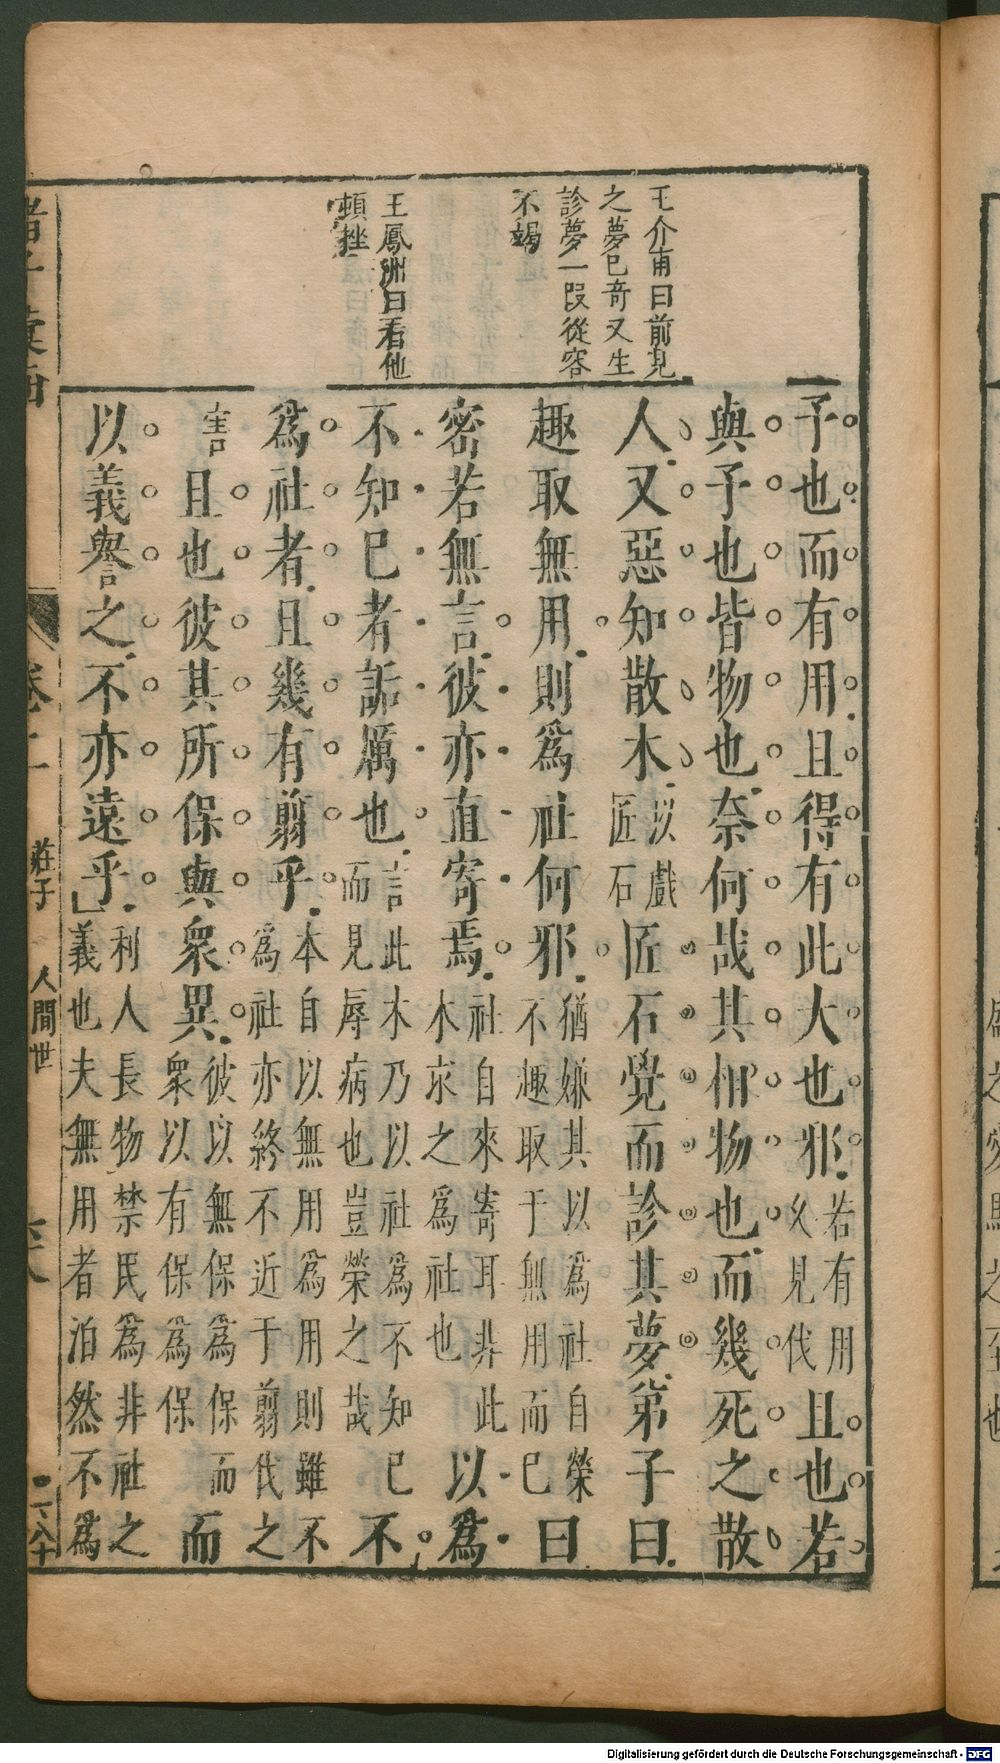 王介甫曰前見
之夢已奇又生
診夢一段從容
不竭
王鳳洲曰看他
頓挫
子也而有用且得有此大也邪若有用久見伐且也若
與予也皆物也奈何哉其相物也而幾死之散
人又惡知散木以戲匠石匠石覺而診其夢弟子曰
趣取無用則爲社何邪猶嫌其以爲社自榮不趣取于無用而已曰
密若無言彼亦直寄焉社自來寄耳非此木求之爲社也以爲
不知已者詬厲也言此木乃以社爲不知已而見辱病也豈榮之哉不
爲社者且幾有翦乎本自以無用爲用則雖不爲社亦終不近于翦伐之
害且也彼其所保與衆異彼以無保爲保而衆以有保爲保而
以義譽之不亦遠乎利人長物禁民爲非社之義也夫無用者泊然不爲
卷二
莊子
人間世
Digitalisierung gefördert durch die Deutsche Forschungsgemeinschaft - DFG